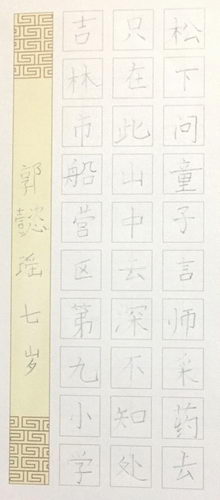 松下问童子言师采药去
只在此山中云深不知处
吉林市船营区第九小学
郭懿瑶 七岁